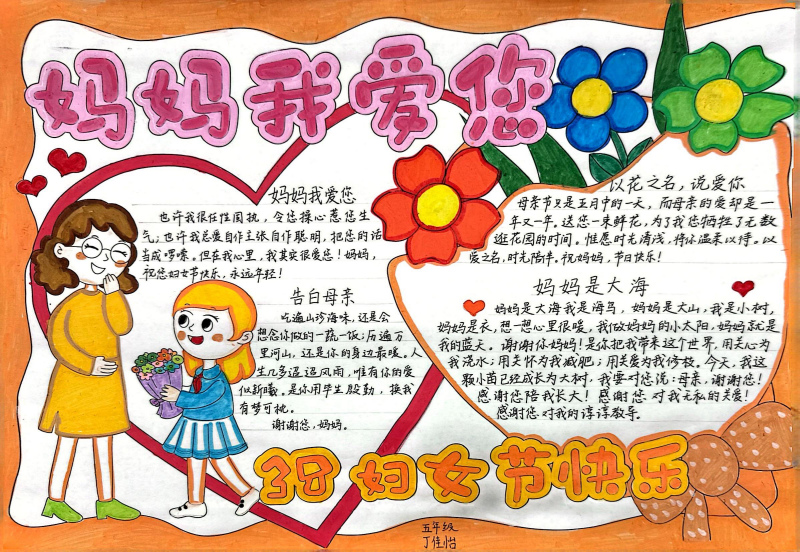 妈妈我爱您
妈妈我爱您
也许我很任性固执,令您操心惹您生
气;也许我总爱自作主张自作聪明,把您的话
当成啰嗦。但在我心里,我其实很爱您!妈妈,
祝您妇女节快乐,永远年轻!
告白母亲
吃遍山珍海味,还是会
想念你做的一蔬一饭;历遍万
里河山,还是你的身边最暖。人
生几多遥迢风雨,唯有你的爱
似新曦。是你用毕生殷勤,换我
有梦可挑。
谢谢您,妈妈。
以花之名,说爱你
母亲节只是五月中的一天,而母亲的爱却是一
年又一年。送您一束鲜花,为了我您牺牲了无数
逛花园的时间。惟愿时光清浅,待你温柔以待。以
爱之名,时光陪伴。祝妈妈,节日快乐!
妈妈是大海
妈妈是大海我是海鸟,妈妈是大山,我是小树,
妈妈是衣,想一想心里很暖,我做妈妈的小太阳,妈妈就是
我的蓝天。谢谢你妈妈!是你把我带来这个世界,用关心为
我浇水;用关怀为我减肥;用关爱为我修枝。今天,我这
颗小苗已经成长为大树,我要对您说:母亲,谢谢您!
感谢您陪我长大!感谢您对我无私的关爱!
感谢您对我的谆谆教导。
38妇女节快乐
五年级
丁佳怡